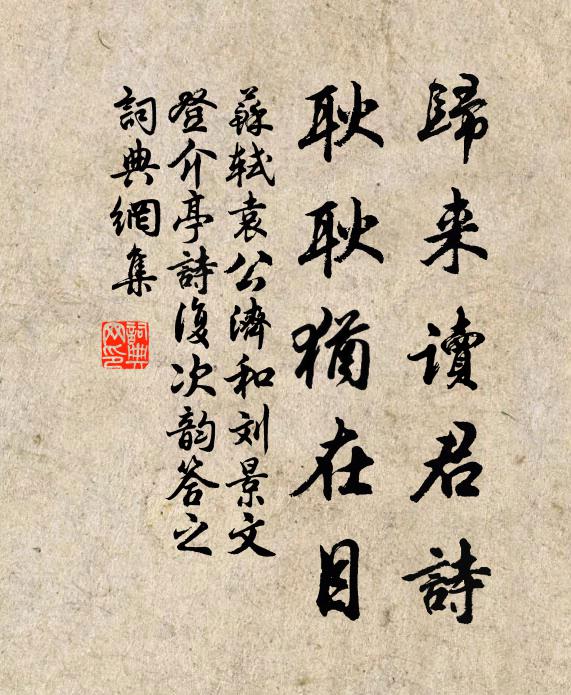 歸来讀君詩
耿耿猶在目
蘇轼袁公濟和刘景文
登介亭詩復次韵答之
詞典網集
詞典网印